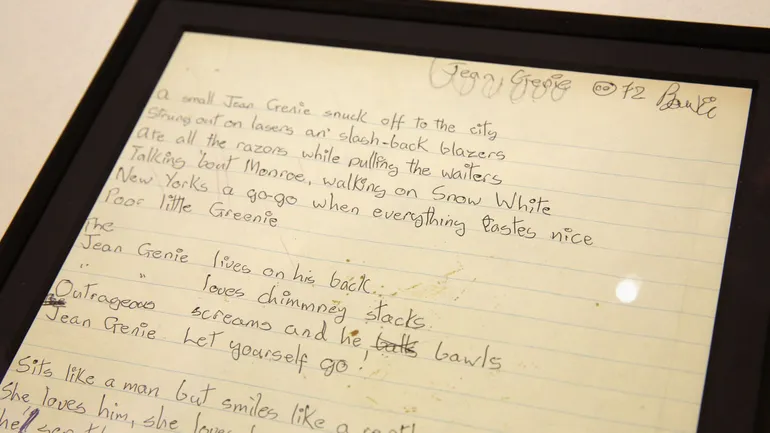 Jean Genie © 72 Bowie
A small Jean Genie snuck off to the city
Strung out on lasers an' slash-back blazers
Ate all the razors while pulling the waiters
Talking 'bout Monroe, walking on Snow White
New Yorks a go-go when everything tastes nice
Poor little Greenie
The
Jean Genie lives on his back.
" " loves chimmney stacks.
Outrageous screams and he bawls
Jean Genie Let yourself go!
Sits like a man but smiles like a
She loves him, she loves
he